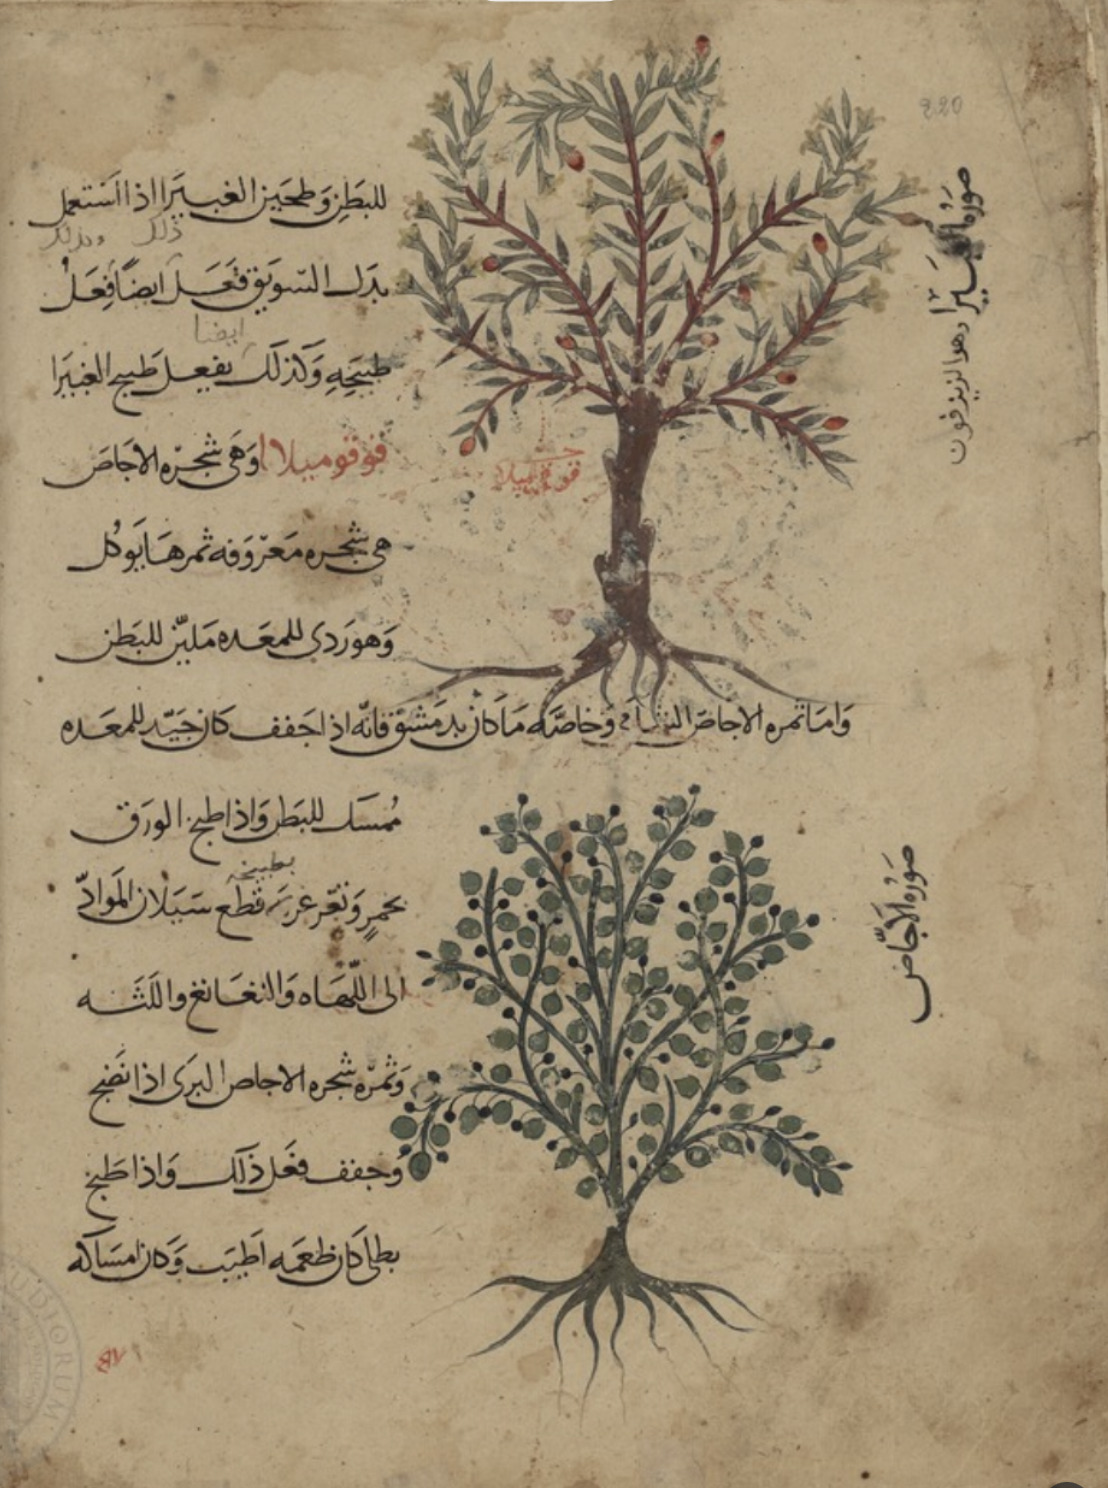 للبَطن وَطحَين الغبيَرا اذا استَعمل
ذلك وبدلك
بدَل السّويَق فعَل ايضًا فِعلُ
ايضا
طبيَخِهِ وَكذلَك يفعل طَبيخ الغبيَرا
قوقوميلاا وَهَى شَجرَه الاجاصَ
هى شجره مَعرُوَفه ثمرهَا يَوكل
وَهو رَدى للمعَده مَليّن للبَطن
وَامَا ثمره الاجاصَ الشامى وَخاصّه مَا كان بدمَشق فانّه اذا جَفف كان جَيّد للمعَده
مُمسَك للبَطن وَاذا طبخ الورَق
بطبيخه
بخمرٍ وَتغَرغر قطَع سَيَلان المَوادّ
الى اللّهَاه وَالنغَانغ واللثَه
وَثمرَه شجره الاجاص البرَى اذا نَضج
وجفف فعَل ذلَك وَاذا طَبخ
بطلا كان طَعمَه اَطيَب وَكان امسَاكه
قوقوميلا
صورَه الغبيَرا
وهو الزيزفون
صورُه الاَجّاص
220